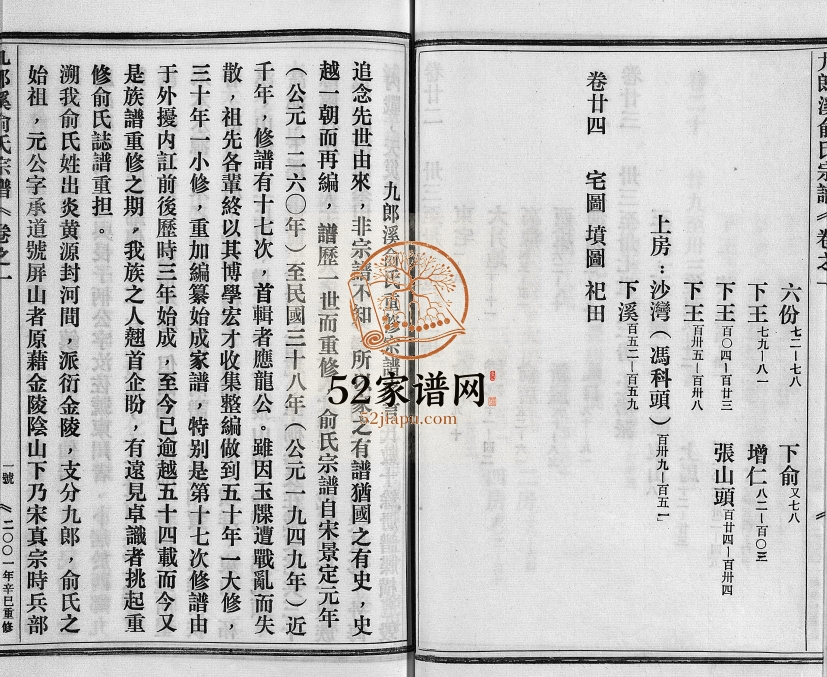 九郎溪俞氏宗譜 卷之一
六份 七二－七八 下俞 又七八
下王 七九－八一 增仁 八二－百〇三
下王 百〇四－百廿三 張山頭 百廿四－百卅四
下王 百卅五－百卅八
上房：沙灣（馮科頭）百卅九－百五一
下溪 百五二－百五九
卷廿四 宅圖 墳圖 祀田
九郎溪俞氏重修宗譜
追念先世由來，非宗譜不知，所以家之有譜猶國之有史，史
越一朝而再編，譜歷一世而重修，俞氏宗譜自宋景定元年
（公元一二六〇年）至民國三十八年（公元一九四九年）近
千年，修譜有十七次，首輯者應龍公。雖因玉牒遭戰亂而失
散，祖先各輩終以其博學宏才收集整編做到五十年一大修，
三十年小修，重加編纂始成家譜，特别是第十七次修譜由
于外擾内訌前後歷時三年始成，至今已逾越五十四載而今又
是族譜重修之期，我族之人翹首企盼，有遠見卓識者挑起重
修俞氏誌譜重担。
溯我俞氏姓出炎黄源封河間，派衍金陵，支分九郎，俞氏之
始祖，元公字承道號屏山者原藉金陵陰山下乃宋真宗時兵部
九郎溪俞氏宗譜 卷之一
一號 二〇〇一年辛巳重修
52家谱网
52jiapu.com